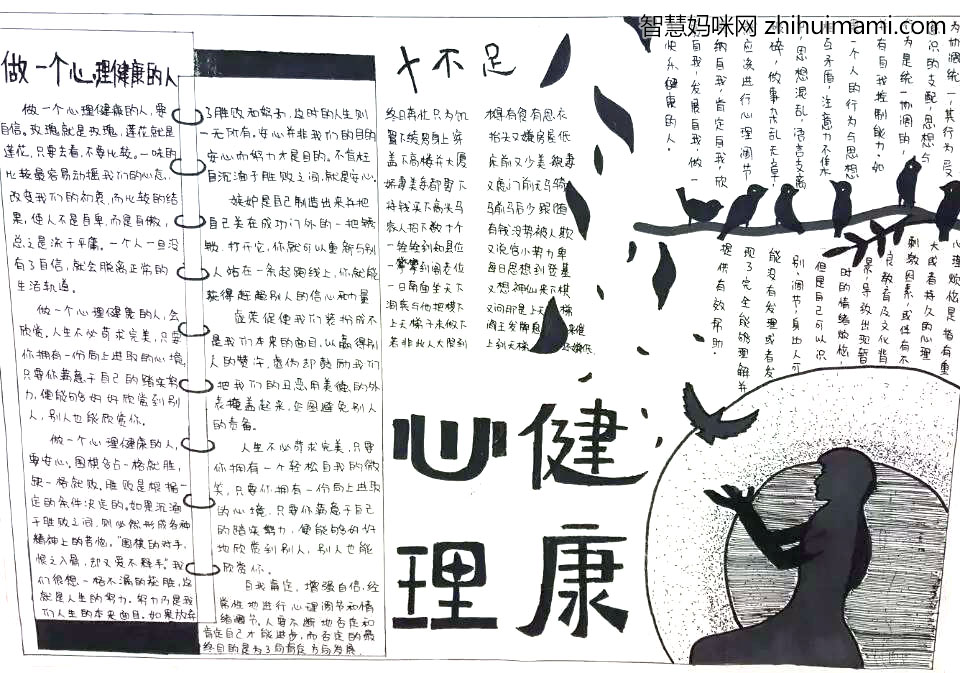 智慧妈咪网 zhihuimami.com
做一个心理健康的人
做一个心理健康的人,要
自信。玫瑰就是玫瑰,莲花就是
莲花,只要去看,不要比较。一味的
比较最容易动摇我们的心态,
改变我们的初衷,而比较的结
果,使人不是自卑,而是自傲,
总之流于平庸。一个人一旦没
有了自信,就会脱离正常的
生活轨道。
做一个心理健康的人,会
欣赏。人生不必苛求完美,只要
你拥有一份向上进取的心境,
只要你蓄意于自己的踏实努
力,便能够好好欣赏到别
人,别人也能欣赏你。
做一个心理健康的人,
要安心。围棋多占一格就胜,
缺一格就败。胜败是根据一
定的条件决定的。如果沉湎
于胜败之间,则必然形成各种
精神上的苦恼。"围棋的对手,
恨之入骨,却又爱不释手。"我
们很想一格不漏的获胜,这
就是人生的努力。努力乃是我
们人生的本来面目。如果放弃
了胜败和努力,这时的人生则
一无所有。安心并非我们的目的
安心而努力才是目的。不怠枉
自沉湎于胜败之间,就是安心。
嫉妒是自己制造出来并把
自己关在成功门外的一把锈
锁。打开它,你就可以重新与别
人站在一条起跑线上,你就能
获得赶超别人的信心和力量
虚荣促使我们装扮成不
是我们本来的面目,以赢得别
人的赞许,虚伪却鼓励我们
把我们的丑恶用美德的外
表掩盖起来,企图避免别人
的责备。
人生不必苛求完美,只要
你拥有一个轻松自我的微
笑,只要你拥有一份向上进取
的心境,只要你蓄意于自己
的踏实努力,便能够好好
地欣赏到别人,别人也能
欣赏你。
自我肯定,增强自信,经
常性地进行心理调节和情
绪调节。人要不断地否定和
肯定自己才能进步,而否定的最
终目的是为了肯定方向发展
十不足
终日奔忙只为饥
才得有食有思衣
置下绫罗身上穿
抬头又嫌房屋低
盖下高楼并大厦
床前又少美貌妻
娇妻美妾都娶下
又虑门前无马骑
将钱买下高头马
马前马后少跟随
家人招下数十个
有钱没势被人欺
一铨铨到知县位
又说官小势力卑
一攀攀到阁老位
每日思想到登基
一日南面坐天下
又想神仙来下棋
洞宾与他把棋下
又问那是上天梯
上天梯子未做下
若非此人大限到
心理
健康
为协调统一,其行为受
意识的支配,思想与
行为是统一协调的,
有自我控制能力。如
一个人的行为与思想
互相矛盾,注意力不集
中,思想混乱,语言支离
破碎,做事杂乱无章,
应该进行心理调节
纳自我,肯定自我,欣
自我,发展自我,做一
快乐健康的人。
心理烦恼是指有重
大或者持久的心理
刺激因素,或伴有不
良教育及文化背
景,导致出现暂
时的情绪烦恼,
但是自己可以认识
别、调节;身边人可
能没有发理或者发
现了完全能够理解并
提供有效帮助。